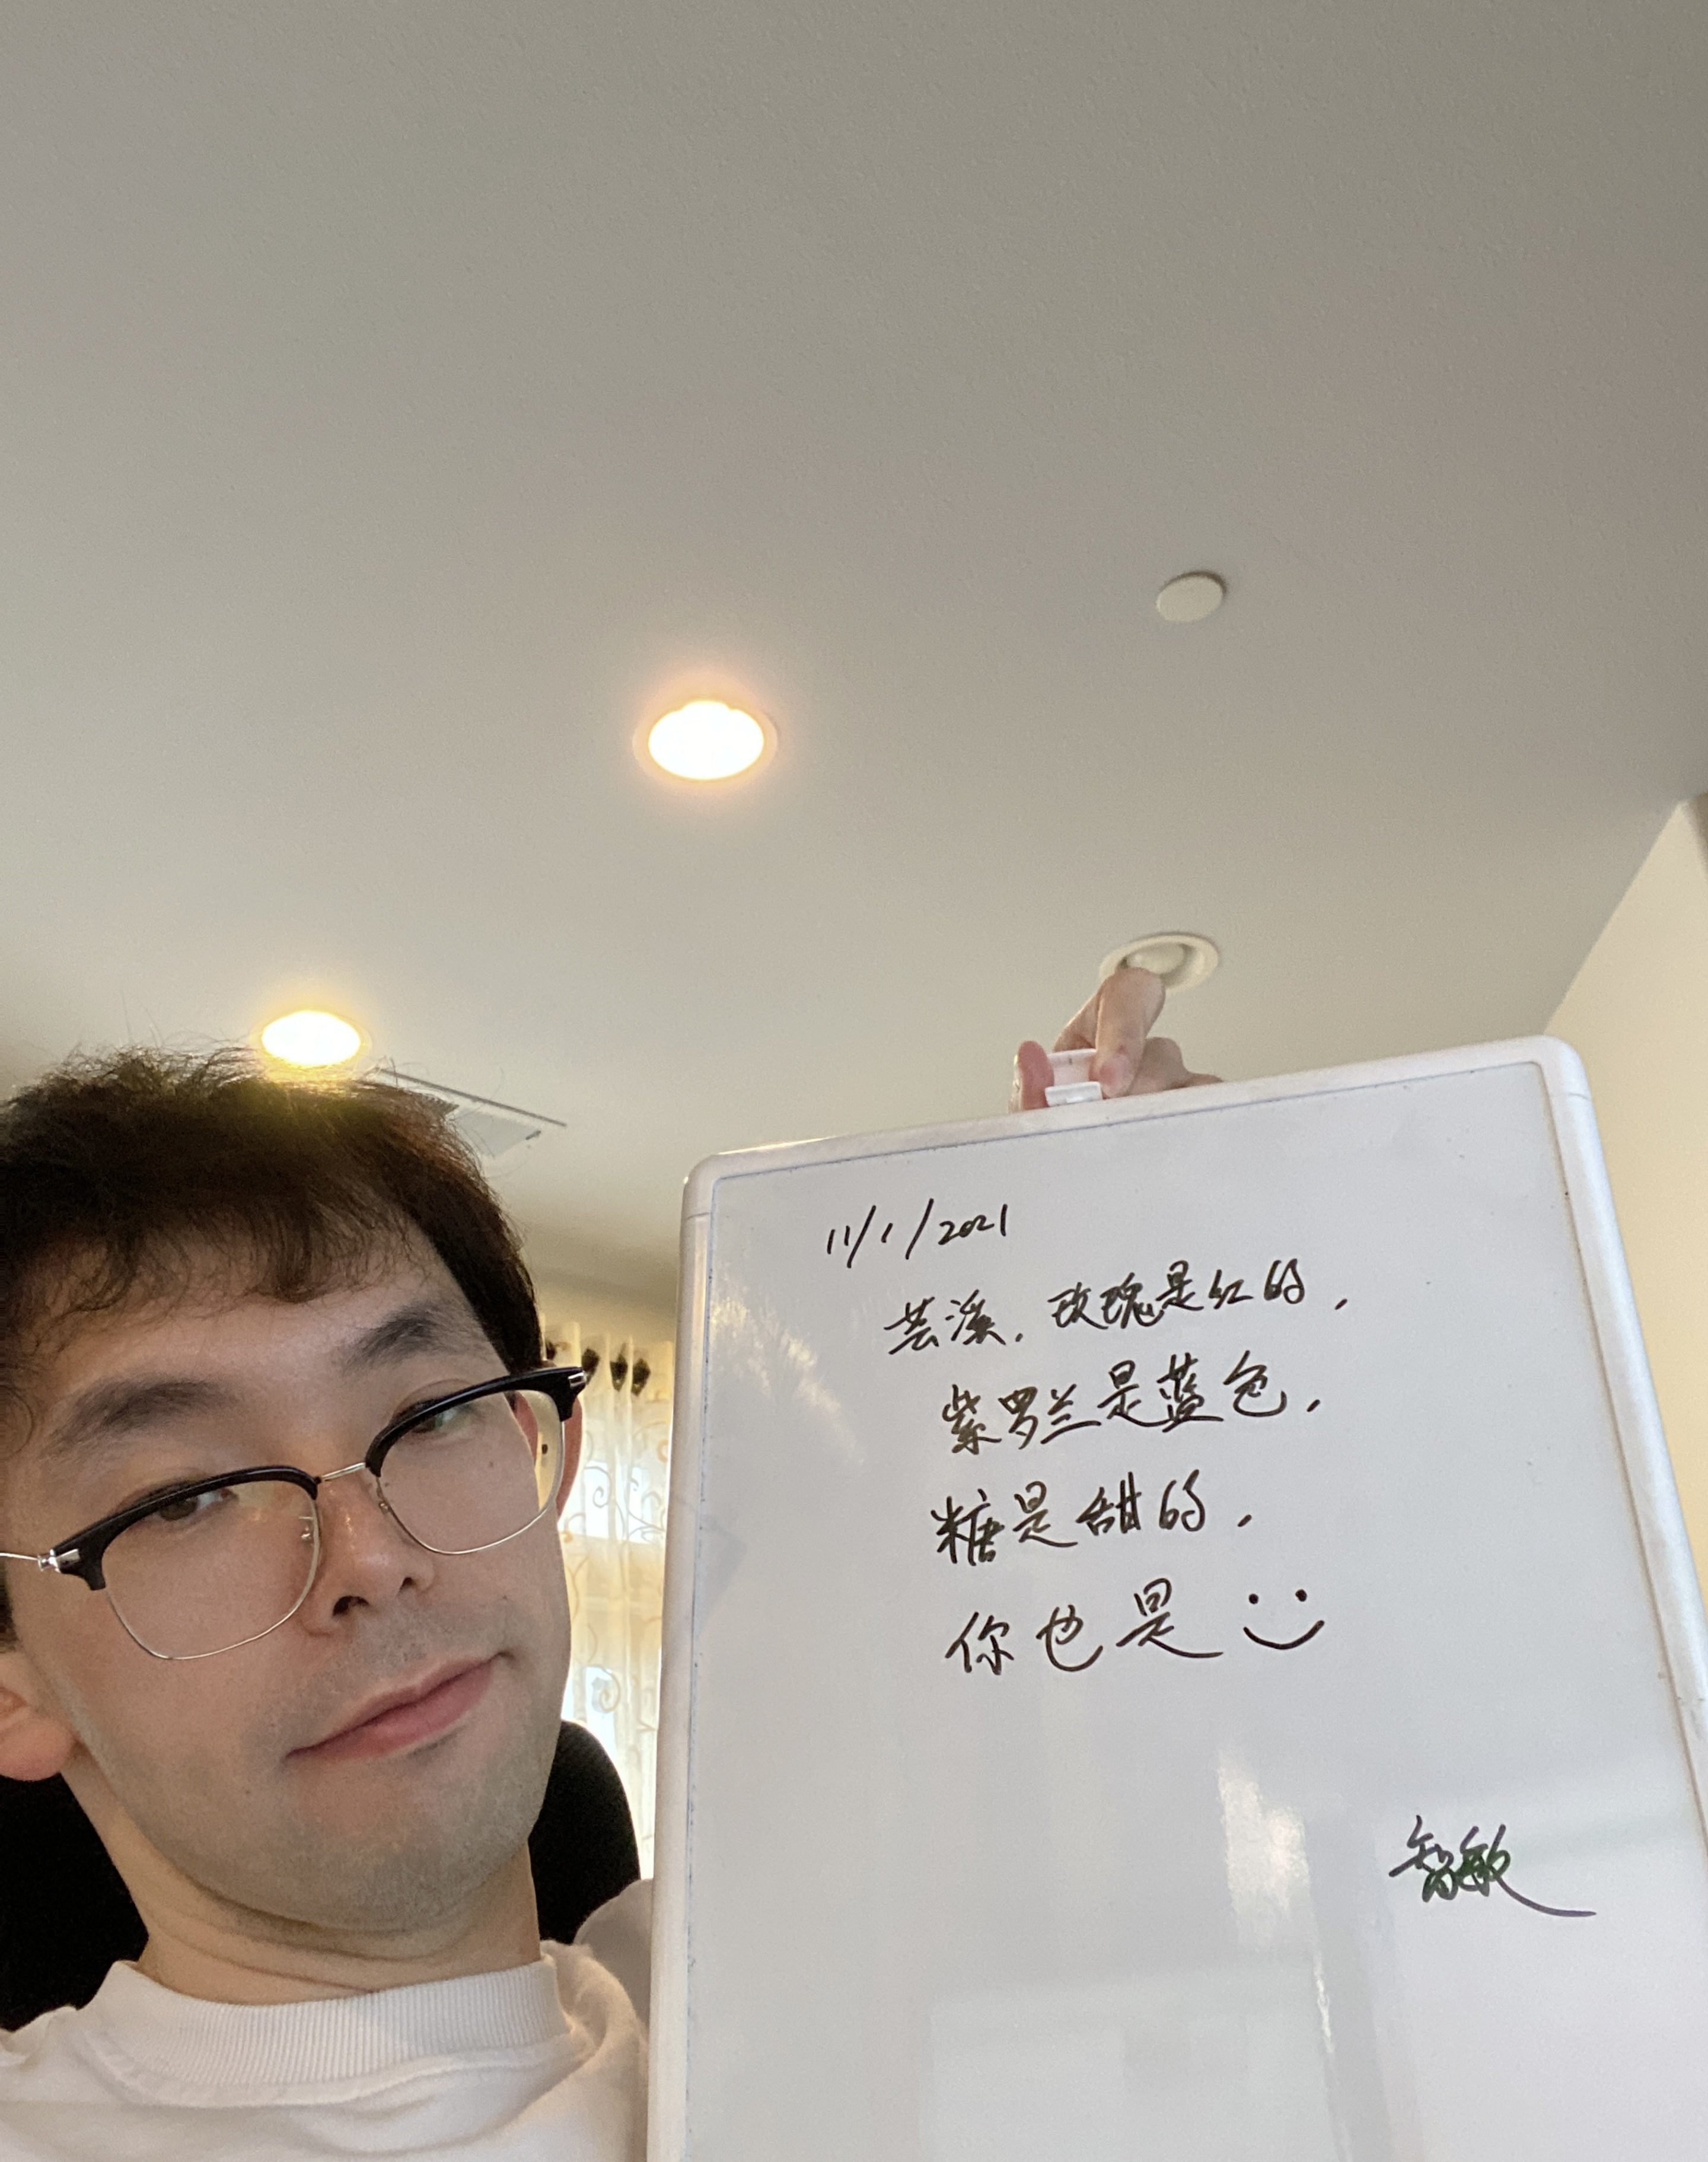 11/1/2021
芸溪，玫瑰是红的，
紫罗兰是蓝色，
糖是甜的，
你也是
智敏